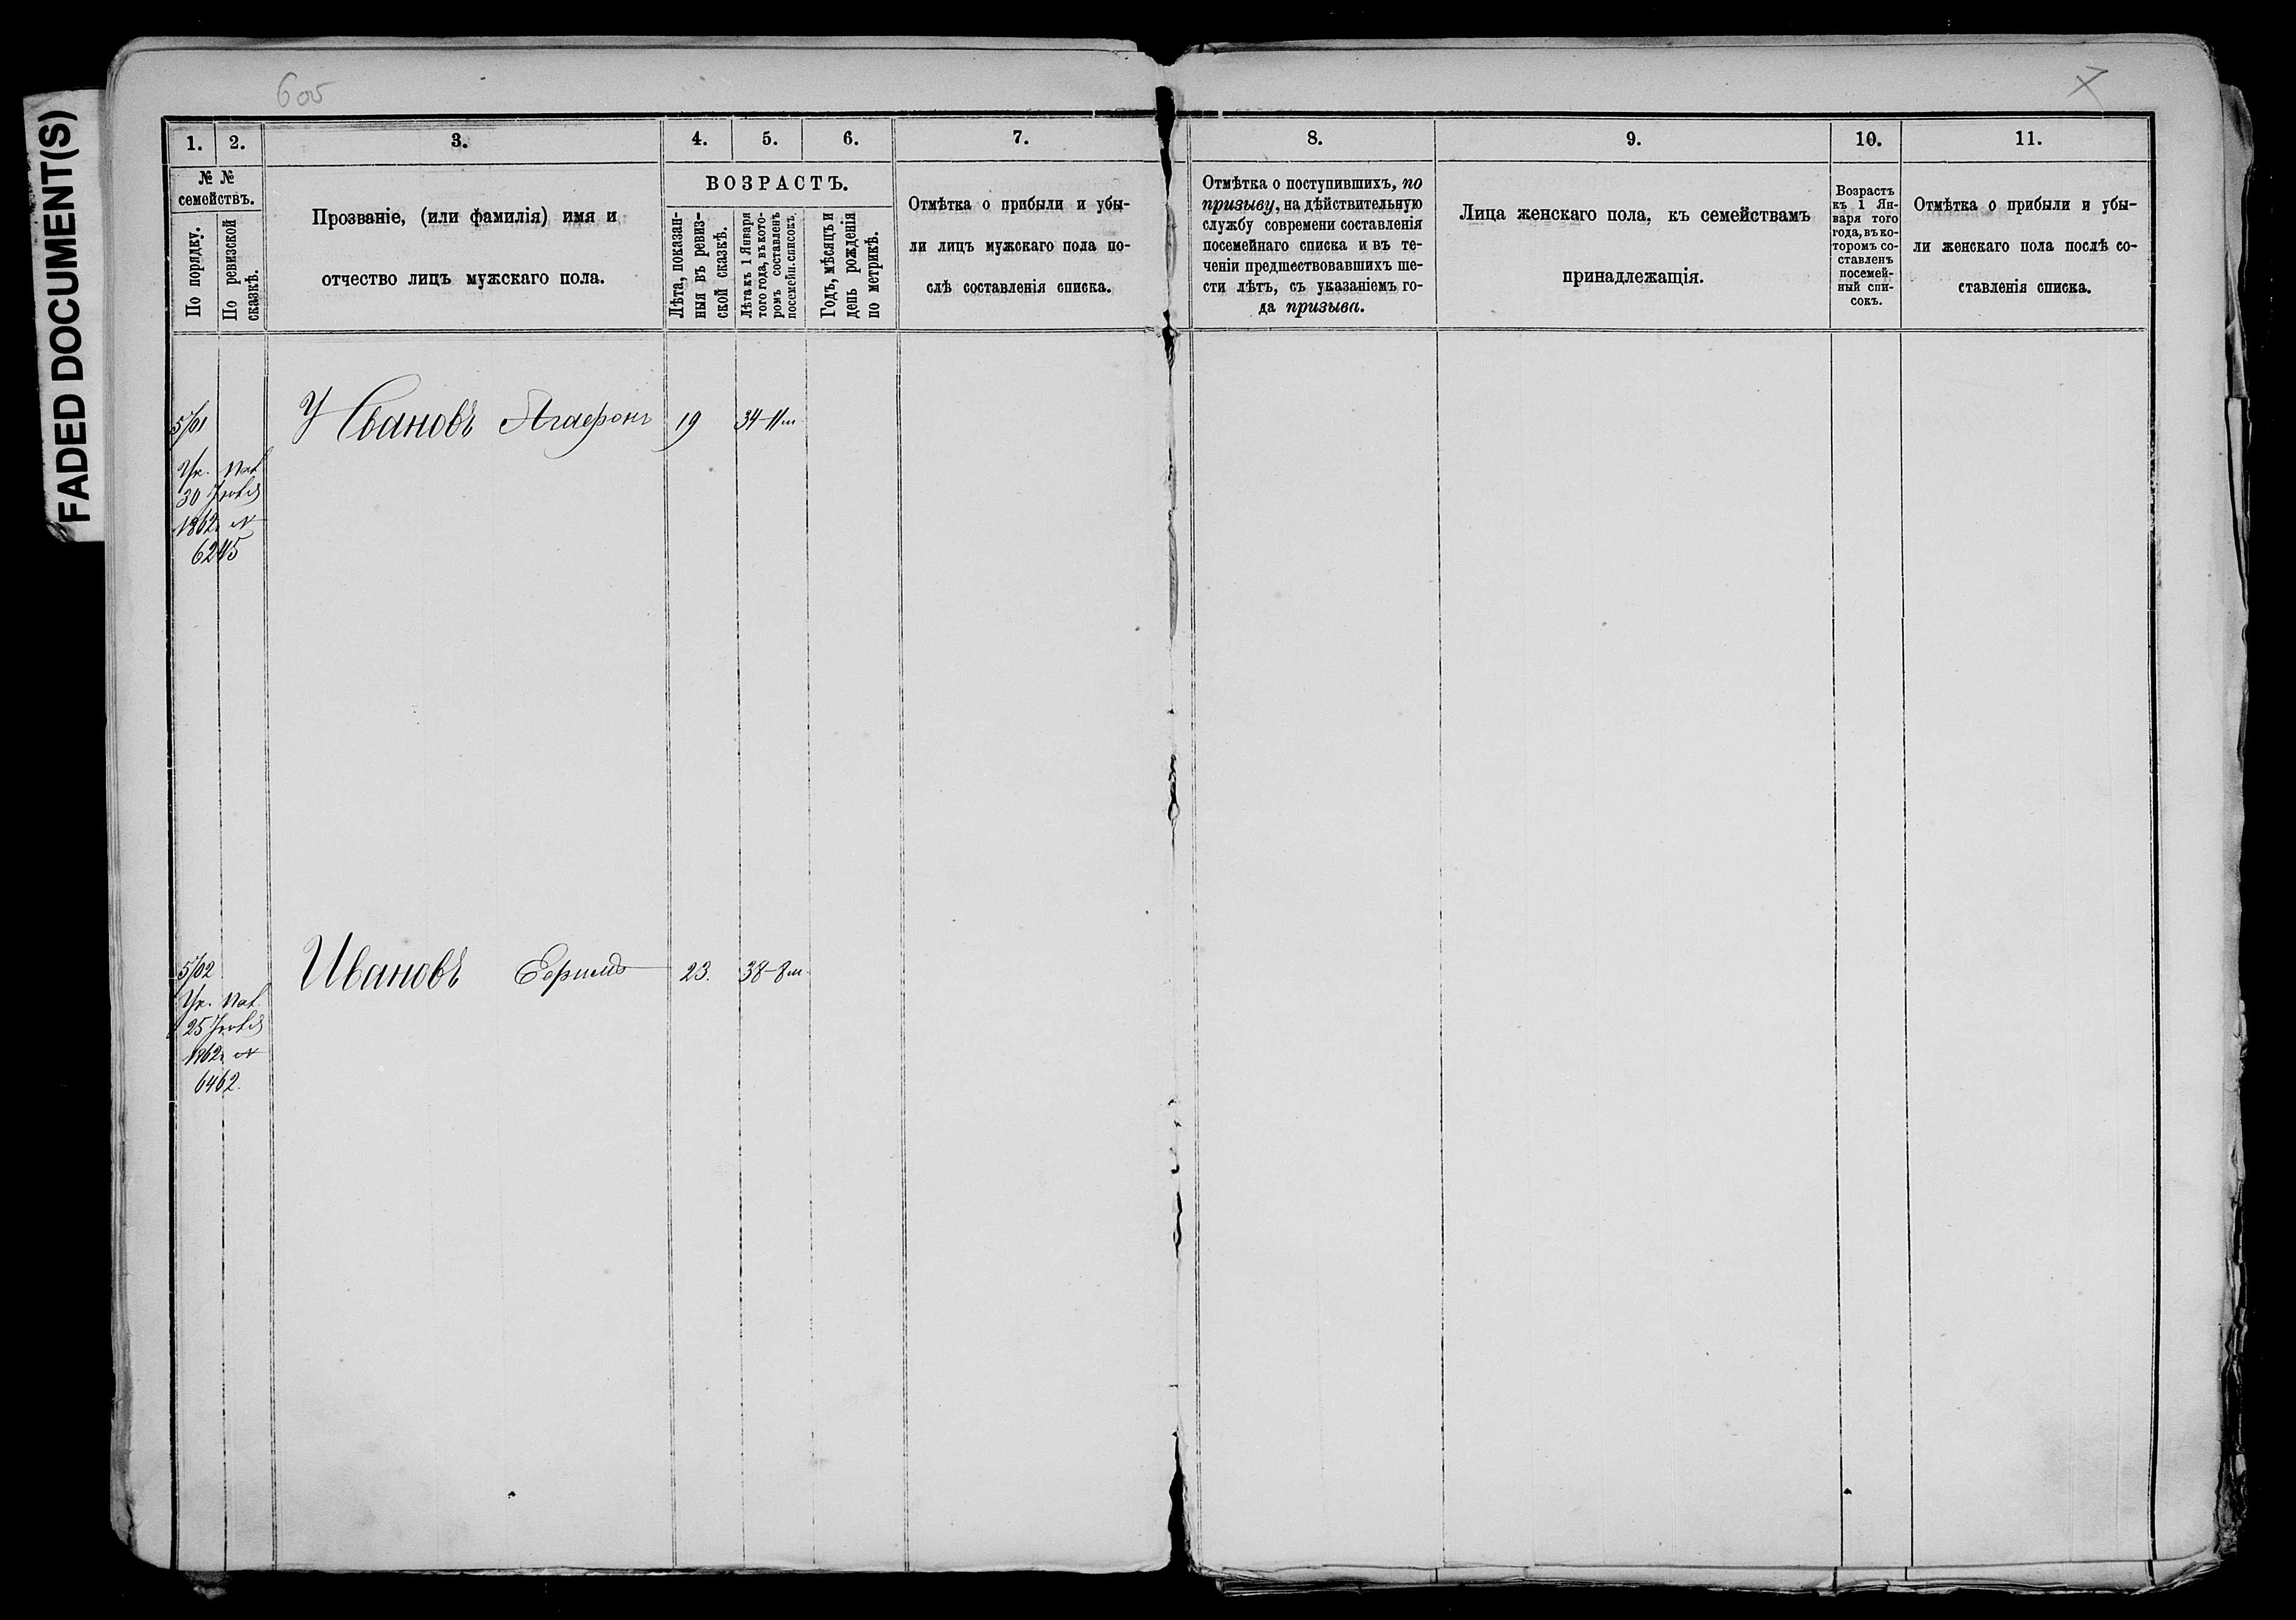 605
FADED DOCUMENT(S)
1.
2.
3.
4.
5.
6.
7.
8.
9.
10.
11.
№ №
семействъ.
По порядку.
По ревизской
сказкѣ.
Прозваніе, (или фамилія) имя и
отчество лицъ мужскаго пола.
ВОЗРАСТЪ.
Лѣта, показан-
ныя въ ревиз-
ской сказкѣ.
Лѣта къ 1 Января
того года, въ кото-
ромъ составленъ
посемейн. списокъ.
Годъ, мѣсяцъ и
день рожденія
по метрикѣ.
Отмѣтка о прибыли и убы-
ли лицъ мужскаго пола по-
слѣ составленія списка.
Отмѣтка о поступившихъ, по
призыву, на дѣйствительную
службу современи составленія
посемейнаго списка и въ те-
ченіи предшествовавшихъ ше-
сти лѣтъ, съ указаніемъ го-
да призыва.
Лица женскаго пола, къ семействамъ
принадлежащія.
Возрастъ
къ 1 Ян-
варя того
года, въ ко-
торомъ со-
ставленъ
посемей-
ный спи-
сокъ.
Отмѣтка о прибыли и убы-
ли женскаго пола послѣ со-
ставленія списка.
5701 Ивановъ Агафонъ 19 34-11м
Ук. Пал.
30
1862 №
6245
5702 Ивановъ Ефимъ 23. 38-8м
Ук. Пал.
25
1862 №
6462.